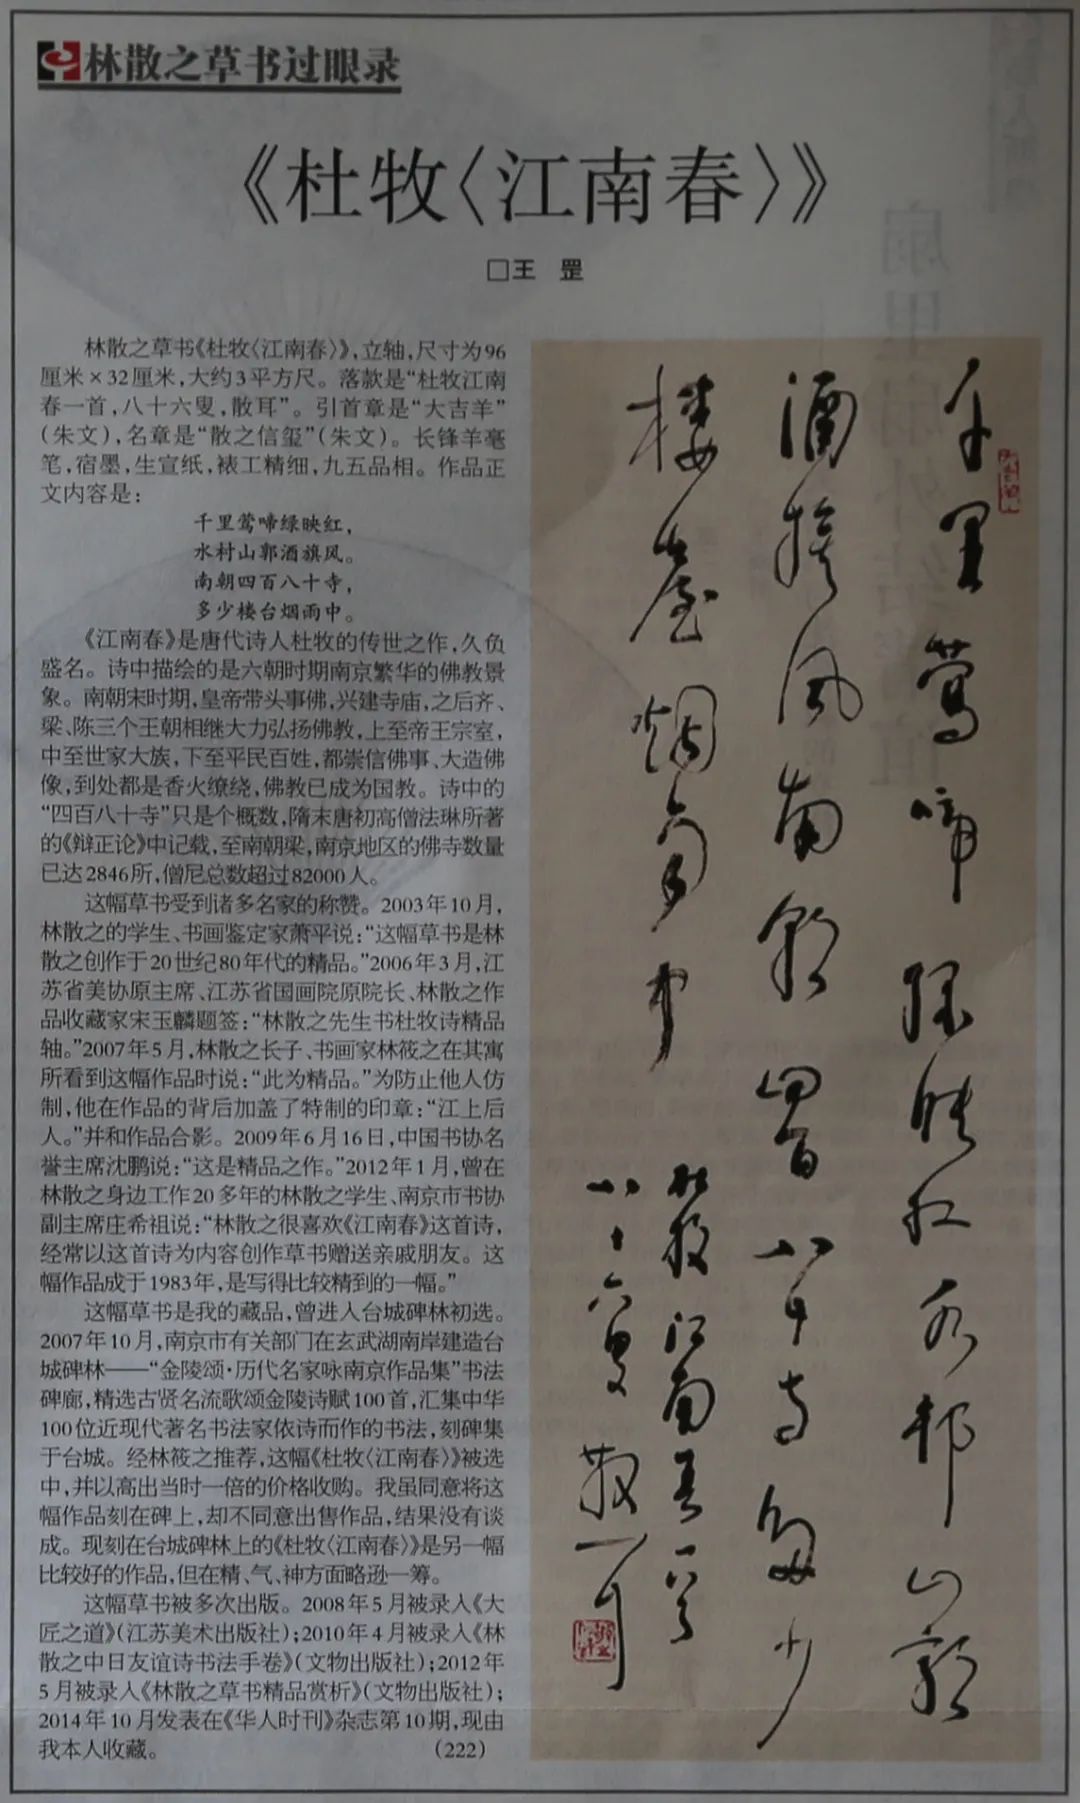 林散之草书过眼录
《杜牧〈江南春〉》
□王 罡
林散之草书《杜牧〈江南春〉》,立轴,尺寸为96
厘米×32厘米,大约3平方尺。落款是“杜牧江南
春一首,八十六叟,散耳”。引首章是“大吉羊”
(朱文),名章是“散之信玺”(朱文)。长锋羊毫
笔,宿墨,生宣纸,裱工精细,九五品相。作品正
文内容是:
千里莺啼绿映红,
水村山郭酒旗风。
南朝四百八十寺,
多少楼台烟雨中。
《江南春》是唐代诗人杜牧的传世之作,久负
盛名。诗中描绘的是六朝时期南京繁华的佛教景
象。南朝宋时期,皇帝带头事佛,兴建寺庙,之后齐、
梁、陈三个王朝相继大力弘扬佛教,上至帝王宗室,
中至世家大族,下至平民百姓,都崇信佛事、大造佛
像,到处都是香火缭绕,佛教已成为国教。诗中的
“四百八十寺”只是个概数,隋末唐初高僧法琳所著
的《辩正论》中记载,至南朝梁,南京地区的佛寺数量
已达2846所,僧尼总数超过82000人。
这幅草书受到诸多名家的称赞。2003年10月,
林散之的学生、书画鉴定家萧平说:“这幅草书是林
散之创作于20世纪80年代的精品。”2006年3月,江
苏省美协原主席、江苏省国画院原院长、林散之作
品收藏家宋玉麟题签:“林散之先生书杜牧诗精品
轴。”2007年5月,林散之长子、书画家林筱之在其寓
所看到这幅作品时说:“此为精品。”为防止他人仿
制,他在作品的背后加盖了特制的印章:“江上后
人。”并和作品合影。2009年6月16日,中国书协名
誉主席沈鹏说:“这是精品之作。”2012年1月,曾在
林散之身边工作20多年的林散之学生、南京市书协
副主席庄希祖说:“林散之很喜欢《江南春》这首诗,
经常以这首诗为内容创作草书赠送亲戚朋友。这
幅作品成于1983年,是写得比较精到的一幅。”
这幅草书是我的藏品,曾进入台城碑林初选。
2007年10月,南京市有关部门在玄武湖南岸建造台
城碑林——“金陵颂·历代名家咏南京作品集”书法
碑廊,精选古贤名流歌颂金陵诗赋100首,汇集中华
100位近现代著名书法家依诗而作的书法,刻碑集
于台城。经林筱之推荐,这幅《杜牧〈江南春〉》被选
中,并以高出当时一倍的价格收购。我虽同意将这
幅作品刻在碑上,却不同意出售作品,结果没有谈
成。现刻在台城碑林上的《杜牧〈江南春〉》是另一幅
比较好的作品,但在精、气、神方面略逊一筹。
这幅草书被多次出版。2008年5月被录入《大
匠之道》(江苏美术出版社);2010年4月被录入《林
散之中日友谊诗书法手卷》(文物出版社);2012年
5月被录入《林散之草书精品赏析》(文物出版社);
2014年10月发表在《华人时刊》杂志第10期,现由
我本人收藏。 (222)
千里莺啼绿映红水村山郭
酒旗风南朝四百八十寺多少
楼台烟雨中
杜牧江南春一首
八十六叟散耳